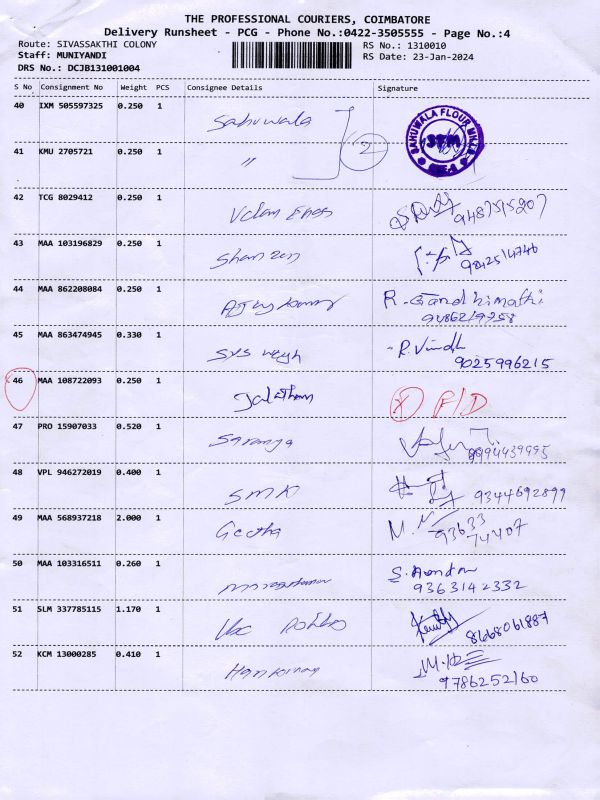 THE PROFESSIONAL COURIERS, COIMBATORE
Delivery Runsheet - PCG - Phone No.:0422-3505555 - Page No.:4
Route: SIVASSAKTHI COLONY RS No.: 1310010
Staff: MUNIYANDI RS Date: 23-Jan-2024
DRS No.: DCJB131001004
S No Consignment No Weight PCS Consignee Details Signature
40 IXM 505597325 0.250 1 Sahuwala SAHUWALA FLOUR MILLS
41 KMU 2705721 0.250 1 〃 2
42 TCG 8029412 0.250 1
9487515207
43 MAA 103196829 0.250 1
9842514746
44 MAA 862208084 0.250 1 R. Gandhimathi
9486219258
45 MAA 863474945 0.330 1 R. Vindh
9025996215
46 MAA 108722093 0.250 1 F/D
47 PRO 15907033 0.520 1 Saranya
9994439995
48 VPL 946272019 0.400 1 SMK 9344692899
49 MAA 568937218 2.000 1 Geetha 93633
74407
50 MAA 103316511 0.260 1
9363142332
51 SLM 337785115 1.170 1 8668061887
52 KCM 13000285 0.410 1
9786252160